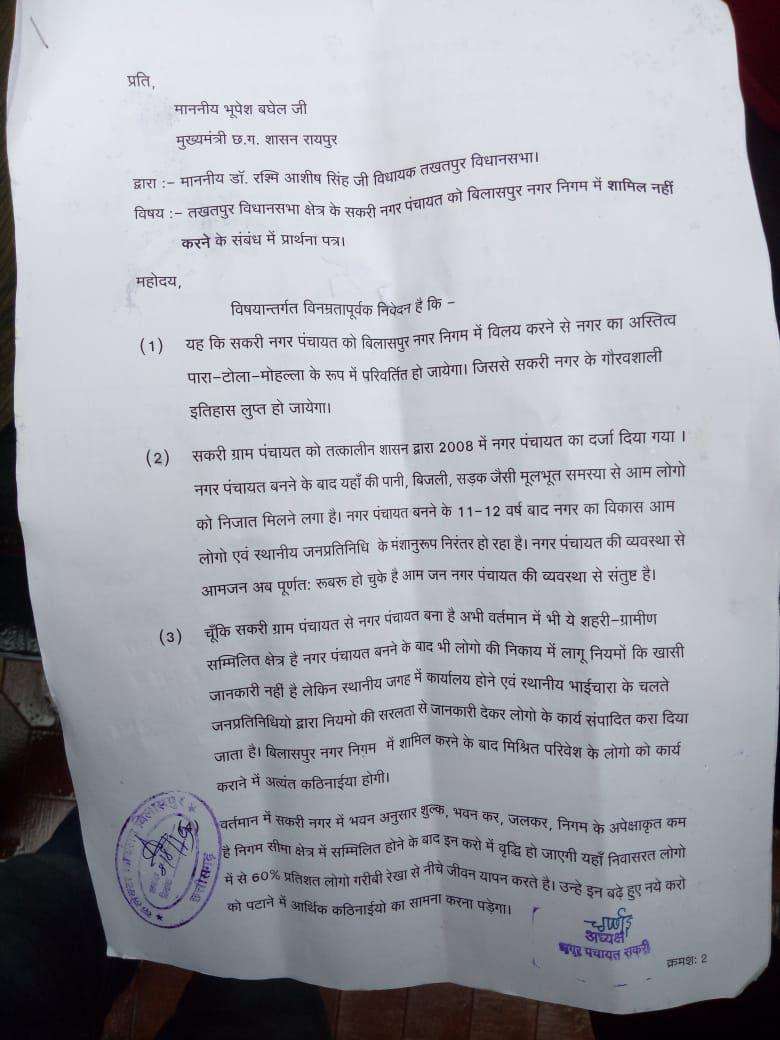 प्रति,
माननीय भूपेश बघेल जी
मुख्यमंत्री छ.ग. शासन रायपुर
द्वारा :- माननीय डॉ. रश्मि आशीष सिंह जी विधायक तखतपुर विधानसभा।
विषय :- तखतपुर विधानसभा क्षेत्र के सकरी नगर पंचायत को बिलासपुर नगर निगम में शामिल नहीं
करने के संबंध में प्रार्थना पत्र।
महोदय,
विषयान्तर्गत विनम्रतापूर्वक निवेदन है कि -
(1) यह कि सकरी नगर पंचायत को बिलासपुर नगर निगम में विलय करने से नगर का अस्तित्व
पारा-टोला-मोहल्ला के रूप में परिवर्तित हो जायेगा। जिससे सकरी नगर के गौरवशाली
इतिहास लुप्त हो जायेगा।
(2) सकरी ग्राम पंचायत को तत्कालीन शासन द्वारा 2008 में नगर पंचायत का दर्जा दिया गया ।
नगर पंचायत बनने के बाद यहाँ की पानी, बिजली, सड़क जैसी मूलभूत समस्या से आम लोगो
को निजात मिलने लगा है। नगर पंचायत बनने के 11-12 वर्ष बाद नगर का विकास आम
लोगो एवं स्थानीय जनप्रतिनिधि के मंशानुरूप निरंतर हो रहा है। नगर पंचायत की व्यवस्था से
आमजन अब पूर्णत: रूबरू हो चुके है आम जन नगर पंचायत की व्यवस्था से संतुष्ट है।
(3) चूँकि सकरी ग्राम पंचायत से नगर पंचायत बना है अभी वर्तमान में भी ये शहरी-ग्रामीण
सम्मिलित क्षेत्र है नगर पंचायत बनने के बाद भी लोगो की निकाय में लागू नियमों कि खासी
जानकारी नहीं है लेकिन स्थानीय जगह में कार्यालय होने एवं स्थानीय भाईचारा के चलते
जनप्रतिनिधियो द्वारा नियमो की सरलता से जानकारी देकर लोगो के कार्य संपादित करा दिया
जाता है। बिलासपुर नगर निगम में शामिल करने के बाद मिश्रित परिवेश के लोगो को कार्य
कराने में अत्यंत कठिनाईया होगी।
वर्तमान में सकरी नगर में भवन अनुसार शुल्क, भवन कर, जलकर, निगम के अपेक्षाकृत कम
है निगम सीमा क्षेत्र में सम्मिलित होने के बाद इन करो में वृद्धि हो जाएगी यहाँ निवासरत लोगो
में से 60% प्रतिशत लोगो गरीबी रेखा से नीचे जीवन यापन करते है। उन्हे इन बढ़े हुए नये करो
को पटाने में आर्थिक कठिनाईयो का सामना करना पड़ेगा।
बिलासपुर
छत्तीसगढ़
अध्यक्ष
नगर पंचायत सकरी
क्रमश: 2